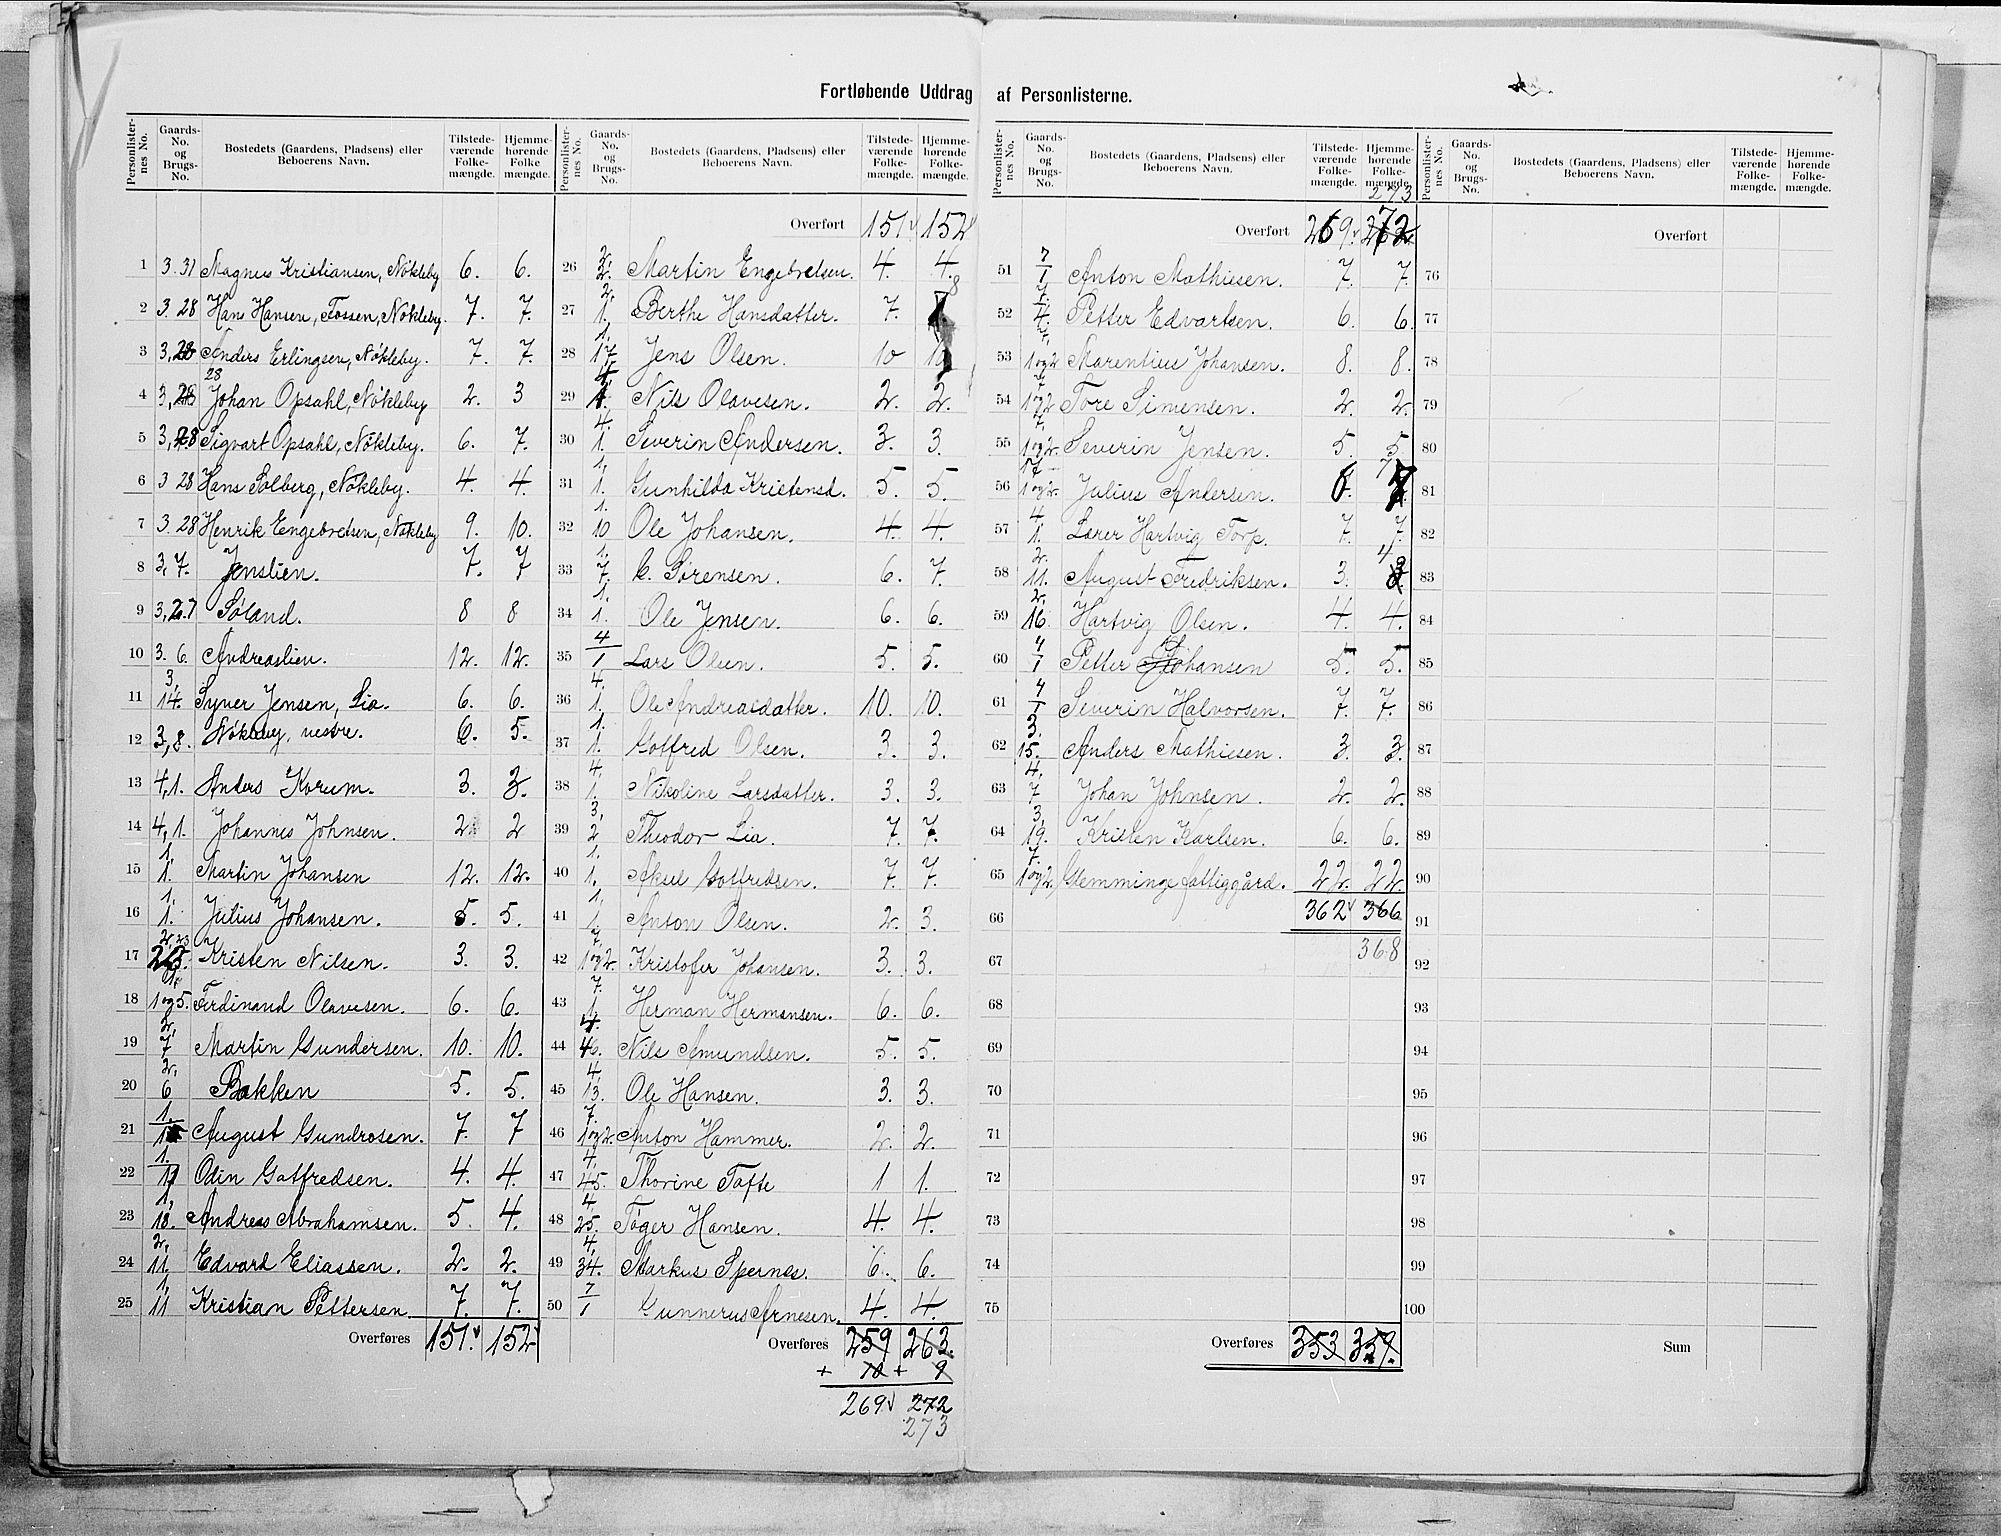 Fortløbende Uddrag af Personlisterne.
Personlisternes No. | Gaards-No. og Brugs-No. | Bostedets (Gaardens, Pladsens) eller Beboerens Navn. | Tilstedeværende Folkemængde. | Hjemmehørende Folkemængde.
1 3.31 Magnus Kristiansen, Nökleby 6. 6.
2 3.28 Hans Hansen, Fossen, Nökleby. 7. 7.
3 3,28 Anders Erlingsen, Nökleby. 7. 7.
4 3,28 28 Johan Opsahl, Nökleby 2. 3
5 3,28 Sigvart Opsahl, Nökleby. 6. 7.
6 3 28 Hans Solberg, Nökleby. 4. 4.
7 3.28 Henrik Engebretsen, Nökleby 9. 10.
8 3,7. Jenslien. 7. 7
9 3,27 Söland. 8 8
10 3.6. Andreaslien. 12. 12.
11 3,14. Syver Jensen, Lia. 6. 6.
12 3,8. Nökleby, vestre. 6. 5.
13 4,1. Anders Korum. 3. 3.
14 4,1. Johannes Johnsen. 2 2
15 1.1. Martin Johansen 12. 12.
16 1.1. Julius Johansen. 5. 5.
17 2,23 Kristen Nilsen. 3. 3.
18 1og5. Ferdinand Olavesen. 6. 6.
19 2,7 Martin Gundersen. 10. 10.
20 2,6 Bakken 5. 5.
21 1. August Gundrosen. 7. 7
22 1. Odin Gotfredsen. 4. 4.
23 1,18. Andreas Abrahamsen. 5. 4.
24 2,11. Edvard Eliassen. 2. 2.
25 1,11 Kristian Pettersen 7. 7.
Overføres 151. 152
Personlisternes No. | Gaards-No. og Brugs-No. | Bostedets (Gaardens, Pladsens) eller Beboerens Navn. | Tilstedeværende Folkemængde. | Hjemmehørende Folkemængde.
Overført 151 152
26 2,2. Martin Engebretsen. 4. 4.
27 2,1. Berthe Hansdatter. 7. 8
28 1.17. Jens Olsen. 10 10
29 Nils Olavesen. 2. 2.
30 4.1. Severin Andersen. 3. 3.
31 1,1. Gunhilda Kristensd. 5. 5.
32 1.10 Ole Johansen. 4. 4.
33 1.7. C. Sörensen. 6. 7.
34 1.1. Ole Jensen. 6. 6.
35 4/1 Lars Olsen. 5. 5.
36 4.1. Ole Andreasdatter. 10. 10.
37 1.1. Gotfred Olsen. 3. 3.
38 4.1. Nikoline Larsdatter. 3. 3.
39 3,2 Theodor Lia. 7. 7.
40 1.1. Aksel Gotfredsen. 7. 7.
41 1,1. Anton Olsen. 2. 3.
42 7, 1og2. Kristofer Johansen. 3. 3.
43 7.1. Herman Hermansen. 6. 6.
44 4.46. Nils Amundsen. 5. 5.
45 4.13. Ole Hansen. 3. 3.
46 7. 1og2. Anton Hammer. 2. 2.
47 4.45. Thorine Tofte 1 1.
48 4.25. Töger Hansen. 4. 4.
49 4,34. Markus Spernes. 6. 6.
50 7/1 Gunnerus Arnesen. 4. 4.
Overføres 259 263.
+ 10 + 9
269 272
273
Personlisternes No. | Gaards-No. og Brugs-No. | Bostedets (Gaardens, Pladsens) eller Beboerens Navn. | Tilstedeværende Folkemængde. | Hjemmehørende Folkemængde.
273
Overført 269. 272
51 7/1 Anton Mathiesen. 7. 7.
52 7.4. Petter Edvartsen. 6. 6.
53 7, 1og2 Marentius Johansen. 8. 8.
54 7 1og2 Tore Simensen. 2. 2.
55 7. 1og2. Severin Jensen. 5. 5.
56 1og2. Julius Andersen. 6. 7
57 4.1. Lærer Hartvig Torp. 7. 7.
58 2.11. August Fredriksen. 3. 4
59 2,16. Hartvig Olsen. 4. 4.
60 7/1 Petter Johansen 5. 5.
61 7/1 Severin Halvorsen. 7. 7.
62 3.15. Anders Mathiesen. 3. 3.
63 4.7 Johan Johnsen. 2. 2.
64 3,19. Kristen Karlsen. 6. 6.
65 7. 1og2. Glemminge fattiggård. 22. 22.
66 362 366
67 368
68
69
70
71
72
73
74
75
Overføres 353 359.
Personlisternes No. | Gaards-No. og Brugs-No. | Bostedets (Gaardens, Pladsens) eller Beboerens Navn. | Tilstedeværende Folkemængde. | Hjemmehørende Folkemængde.
Overført
76
77
78
79
80
81
82
83
84
85
86
87
88
89
90
91
92
93
94
95
96
97
98
99
100
Sum